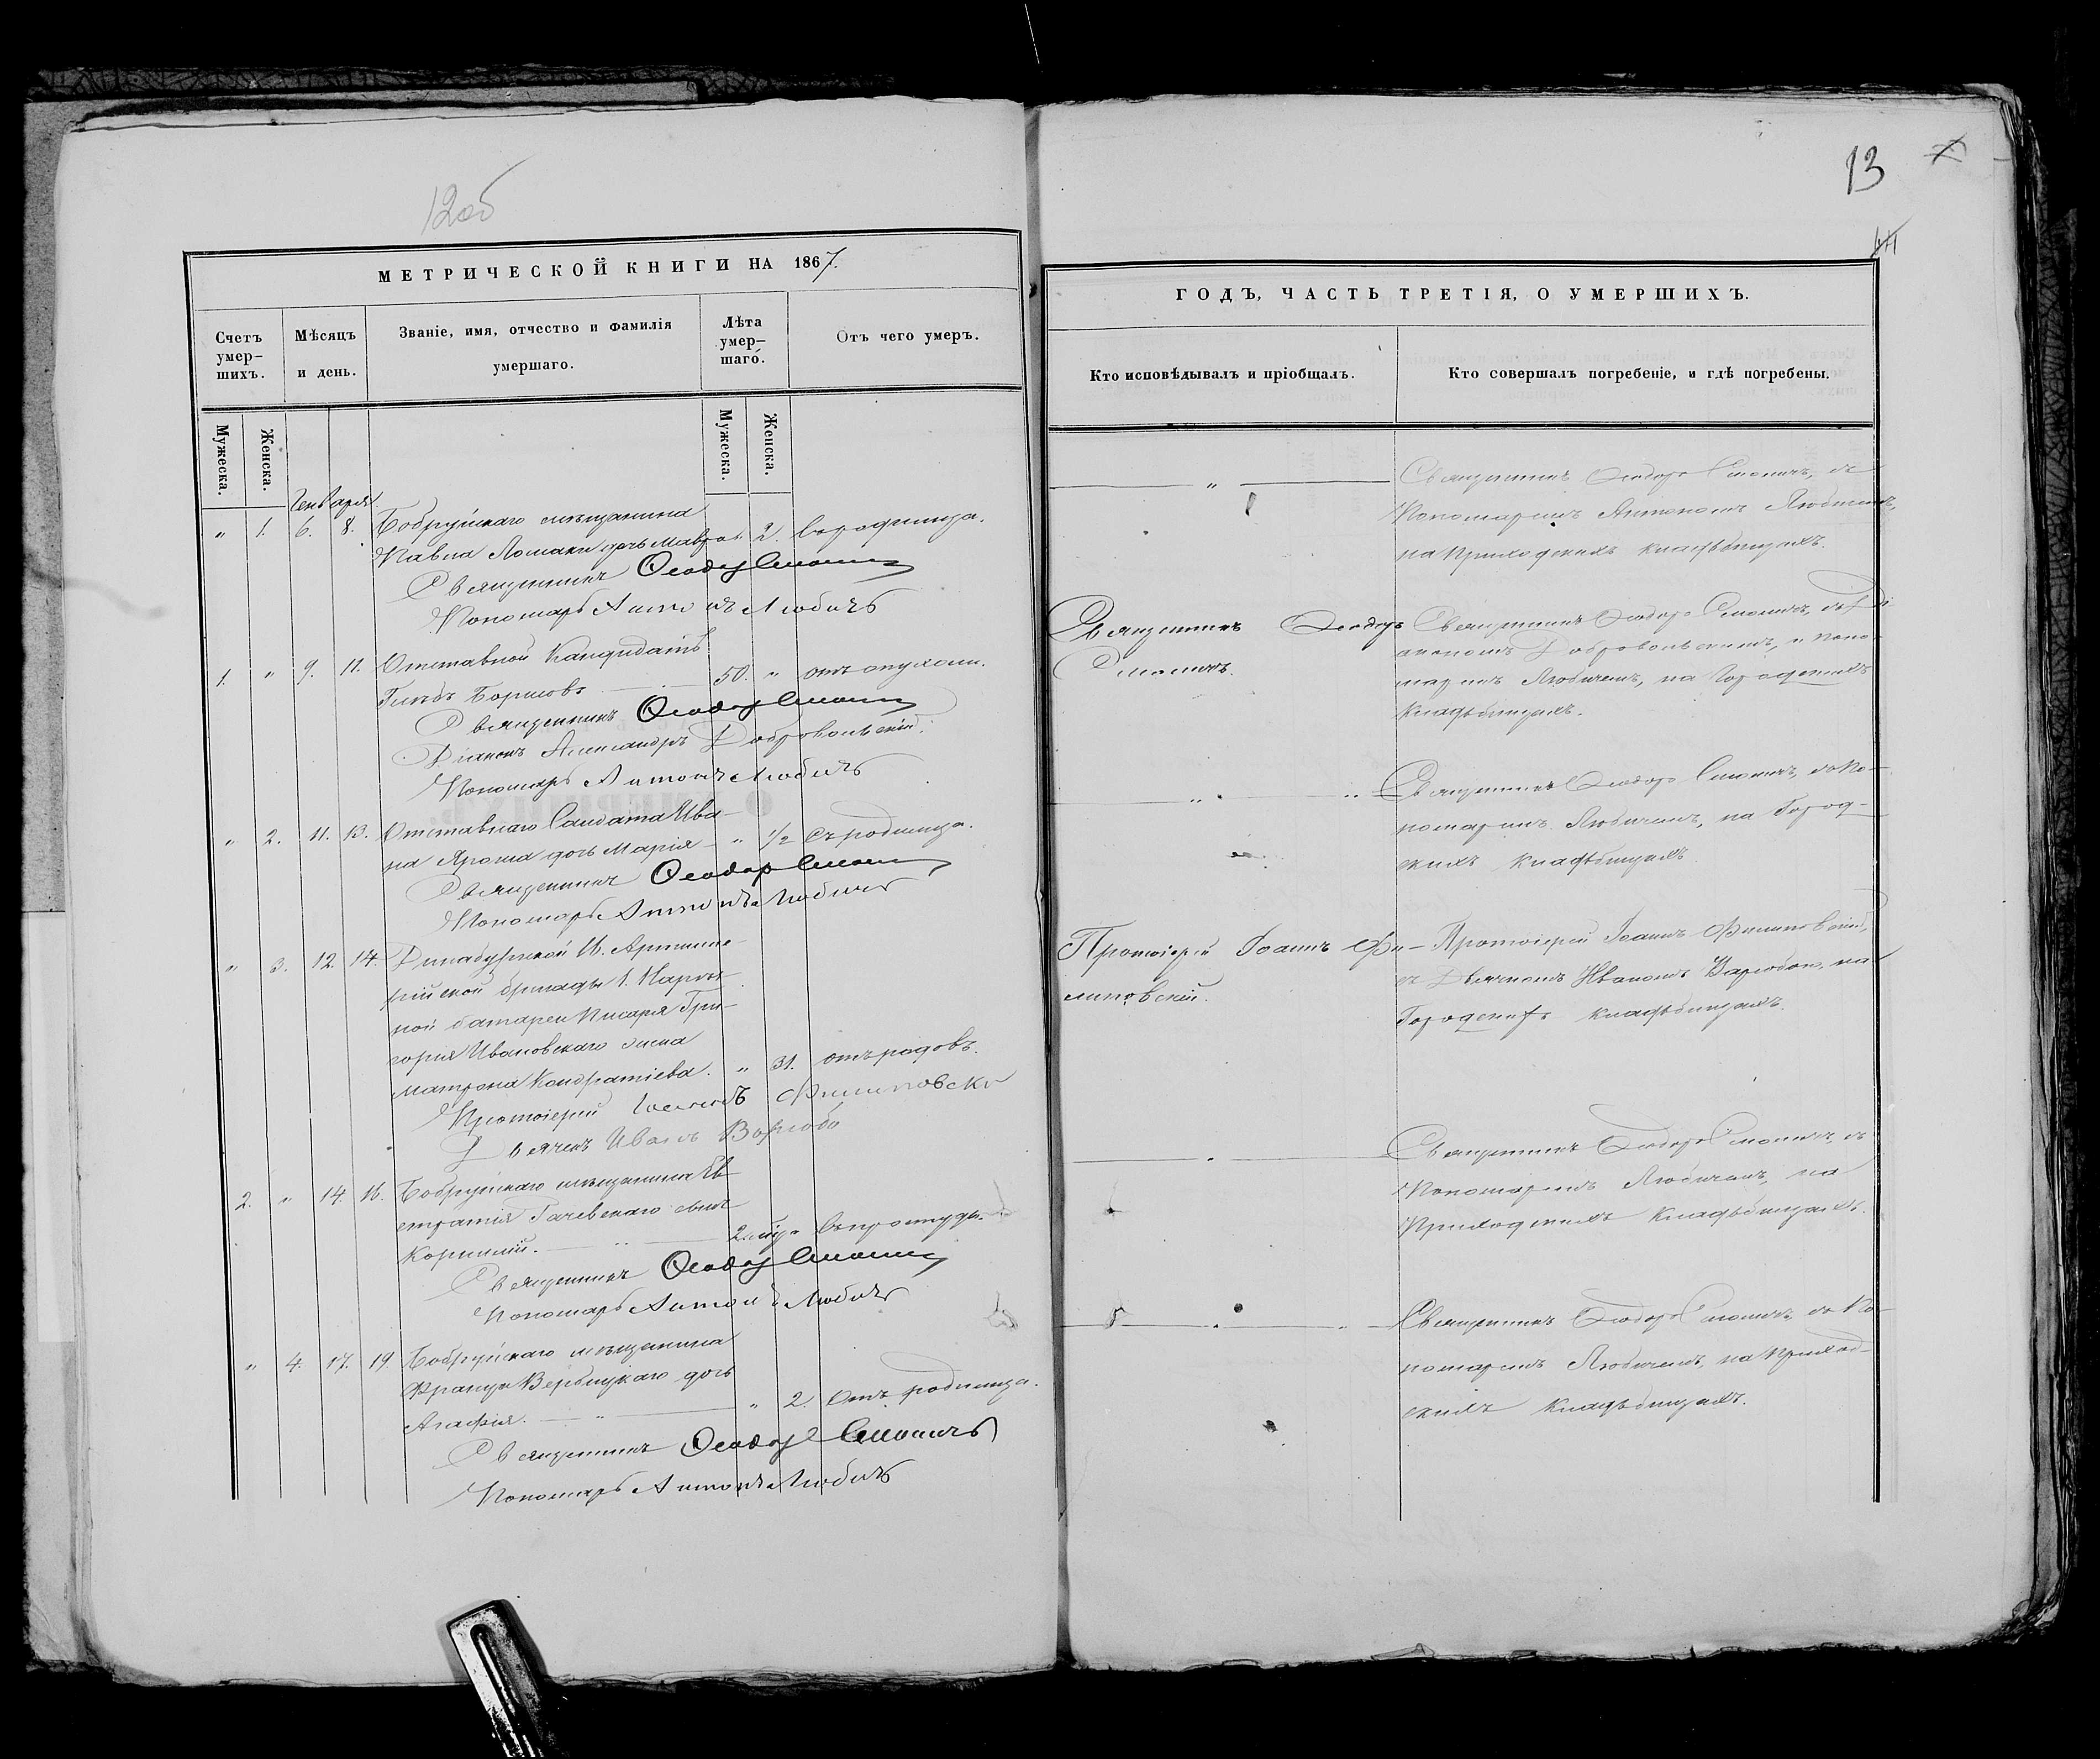 12об
МЕТРИЧЕСКОЙ КНИГИ НА 1867.
Счетъ умер-шихъ.
Мѣсяцъ и день.
Званіе, имя, отчество и фамилія умершаго.
Лѣта умер-шаго.
Отъ чего умеръ.
Мужеска.
Женска.
Мужеска.
Женска.
Генваря
" 1. 6. 8. Бобруйскаго мѣщанина
Павла Ломаки дочь Мавра 2.
Священникъ Ѳеодор Смолич
Пономарь Антонъ Любичъ
1. " 9. 11. Отставной Кандидатъ
Борисовъ 50. " отъ опухоли.
Священникъ Ѳеодор Смолич
Діаконъ Александръ Добровольскій.
Пономарь Антонъ Любичъ
" 2. 11. 13. Отставнаго Солдата Ива-
на Яроша дочь Марія " 1/2 съ родимца.
Священникъ Ѳеодор Смолич
Пономарь Антонъ Любичъ
" 3. 12. 14. Динабургской Артилле-
рійской бригады 1.
ной батареи Писаря Гри-
горія Ивановскаго жена
Матрона Кондратіева. " 31. отъ родовъ.
Протоіерей Іоаннъ Филиповскі
Дьячекъ Иванъ
2. " 14. 16. Бобруйскаго мѣщанина Ев
стратія сынъ
Корнилій. въ простуды.
Священникъ Ѳеодор Смолич
Пономарь Антонъ Любичъ
" 4. 17. 19. Бобруйскаго мѣщанина
Франца Вербицкаго дочь
Агафія. " 2. Отъ родимца.
Священникъ Ѳеодор Смоличъ
Пономарь Антонъ Любичъ
13
ГОДЪ, ЧАСТЬ ТРЕТІЯ, О УМЕРШИХЪ.
Кто исповѣдывалъ и пріобщалъ.
Кто совершалъ погребеніе, и гдѣ погребены.
Священникъ Ѳеодоръ Смоличъ, съ
Пономаремъ Антономъ Любичемъ,
на Приходскихъ кладбищахъ.
Священникъ Ѳеодоръ
Смоличъ.
Священникъ Ѳеодоръ Смоличъ, съ Ді
акономъ Добровольскимъ, и поно-
маремъ Любичемъ, на Городскихъ
кладбищахъ.
Священникъ Ѳеодоръ Смоличъ, съ По-
номаремъ Любичемъ, на Город-
скихъ кладбищахъ.
Протоіерей Іоаннъ Фи-
липовскій.
Протоіерей Іоаннъ Филиповскій,
съ Дьячкомъ Иваномъ на
Городскихъ кладбищахъ.
Священникъ Ѳеодоръ Смоличъ, съ
Пономаремъ Любичемъ, на
Приходскихъ кладбищахъ.
Священникъ Ѳеодоръ Смоличъ, съ По-
номаремъ Любичемъ, на Приход-
скихъ кладбищахъ.